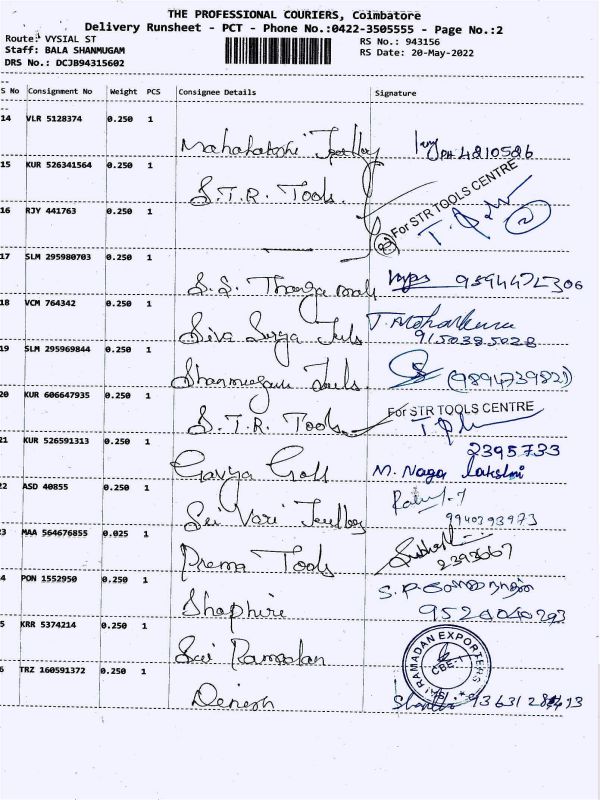 THE PROFESSIONAL COURIERS, Coimbatore
Delivery Runsheet - PCT - Phone No.:0422-3505555 - Page No.:2
Route: VYSIAL ST
RS No.: 943156
Staff: BALA SHANMUGAM
RS Date: 20-May-2022
DRS No.: DCJB94315602
S No Consignment No Weight PCS Consignee Details Signature
14 VLR 5128374 0.250 1
Jewellery PH 4210586
15 KUR 526341564 0.250 1
S.T.R. Tools.
For STR TOOLS CENTRE
16 RJY 441763 0.250 1
17 SLM 295980703 0.250 1
S.S. Thanga maali
18 VCM 764342 0.250 1
Siva Surya Juls
9150385028
19 SLM 295969844 0.250 1
Shanmugam Juls (9894739821)
20 KUR 606647935 0.250 1
For STR TOOLS CENTRE
S.T.R. Tools
21 KUR 526591313 0.250 1
2395733
Gavya Gold M. Naga lakshmi
22 ASD 40855 0.250 1
Sri Vari Jewellery
9940393973
23 MAA 564676855 0.025 1
Prema Tools 2393667
4 PON 1552950 0.250 1
Shaphire 9520040293
5 KRR 5374214 0.250 1
Sai Ramadan
SAI RAMADAN EXPORTERS
CBE-1
6 TRZ 160591372 0.250 1
Dinesh